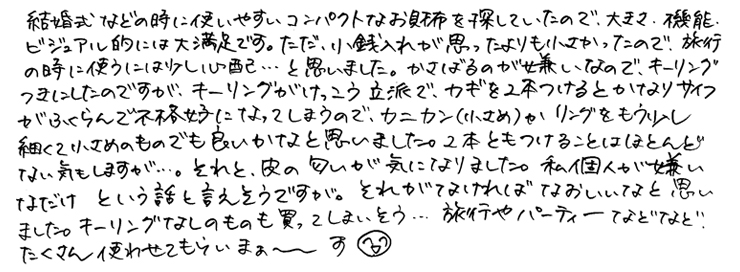 結婚式などの時に使いやすいコンパクトなお財布を探していたので、大きさ・機能・
ビジュアル的には大満足です。ただ、小銭入れが思ったよりも小さかったので、旅行
の時に使うには少し心配…と思いました。かさばるのが嫌いなので、キーリング
つきにしたのですが、キーリングがけっこう立派で、カギを2本つけるとかなりサイフ
がふくらんで不格好になってしまうので、カニカン(小さめ)かリングをもう少し
細くて小さめのものでも良いかなと思いました。2本ともつけることはほとんど
ない気もしますが…。それと、皮の匂いが気になりました。私個人が嫌い
なだけという話と言えそうですが。それがなければなおいいなと思い
ました。キーリングなしのものも買ってしまいそう…旅行やパーティーなどなど
たくさん使わせてもらいまぁ〜す